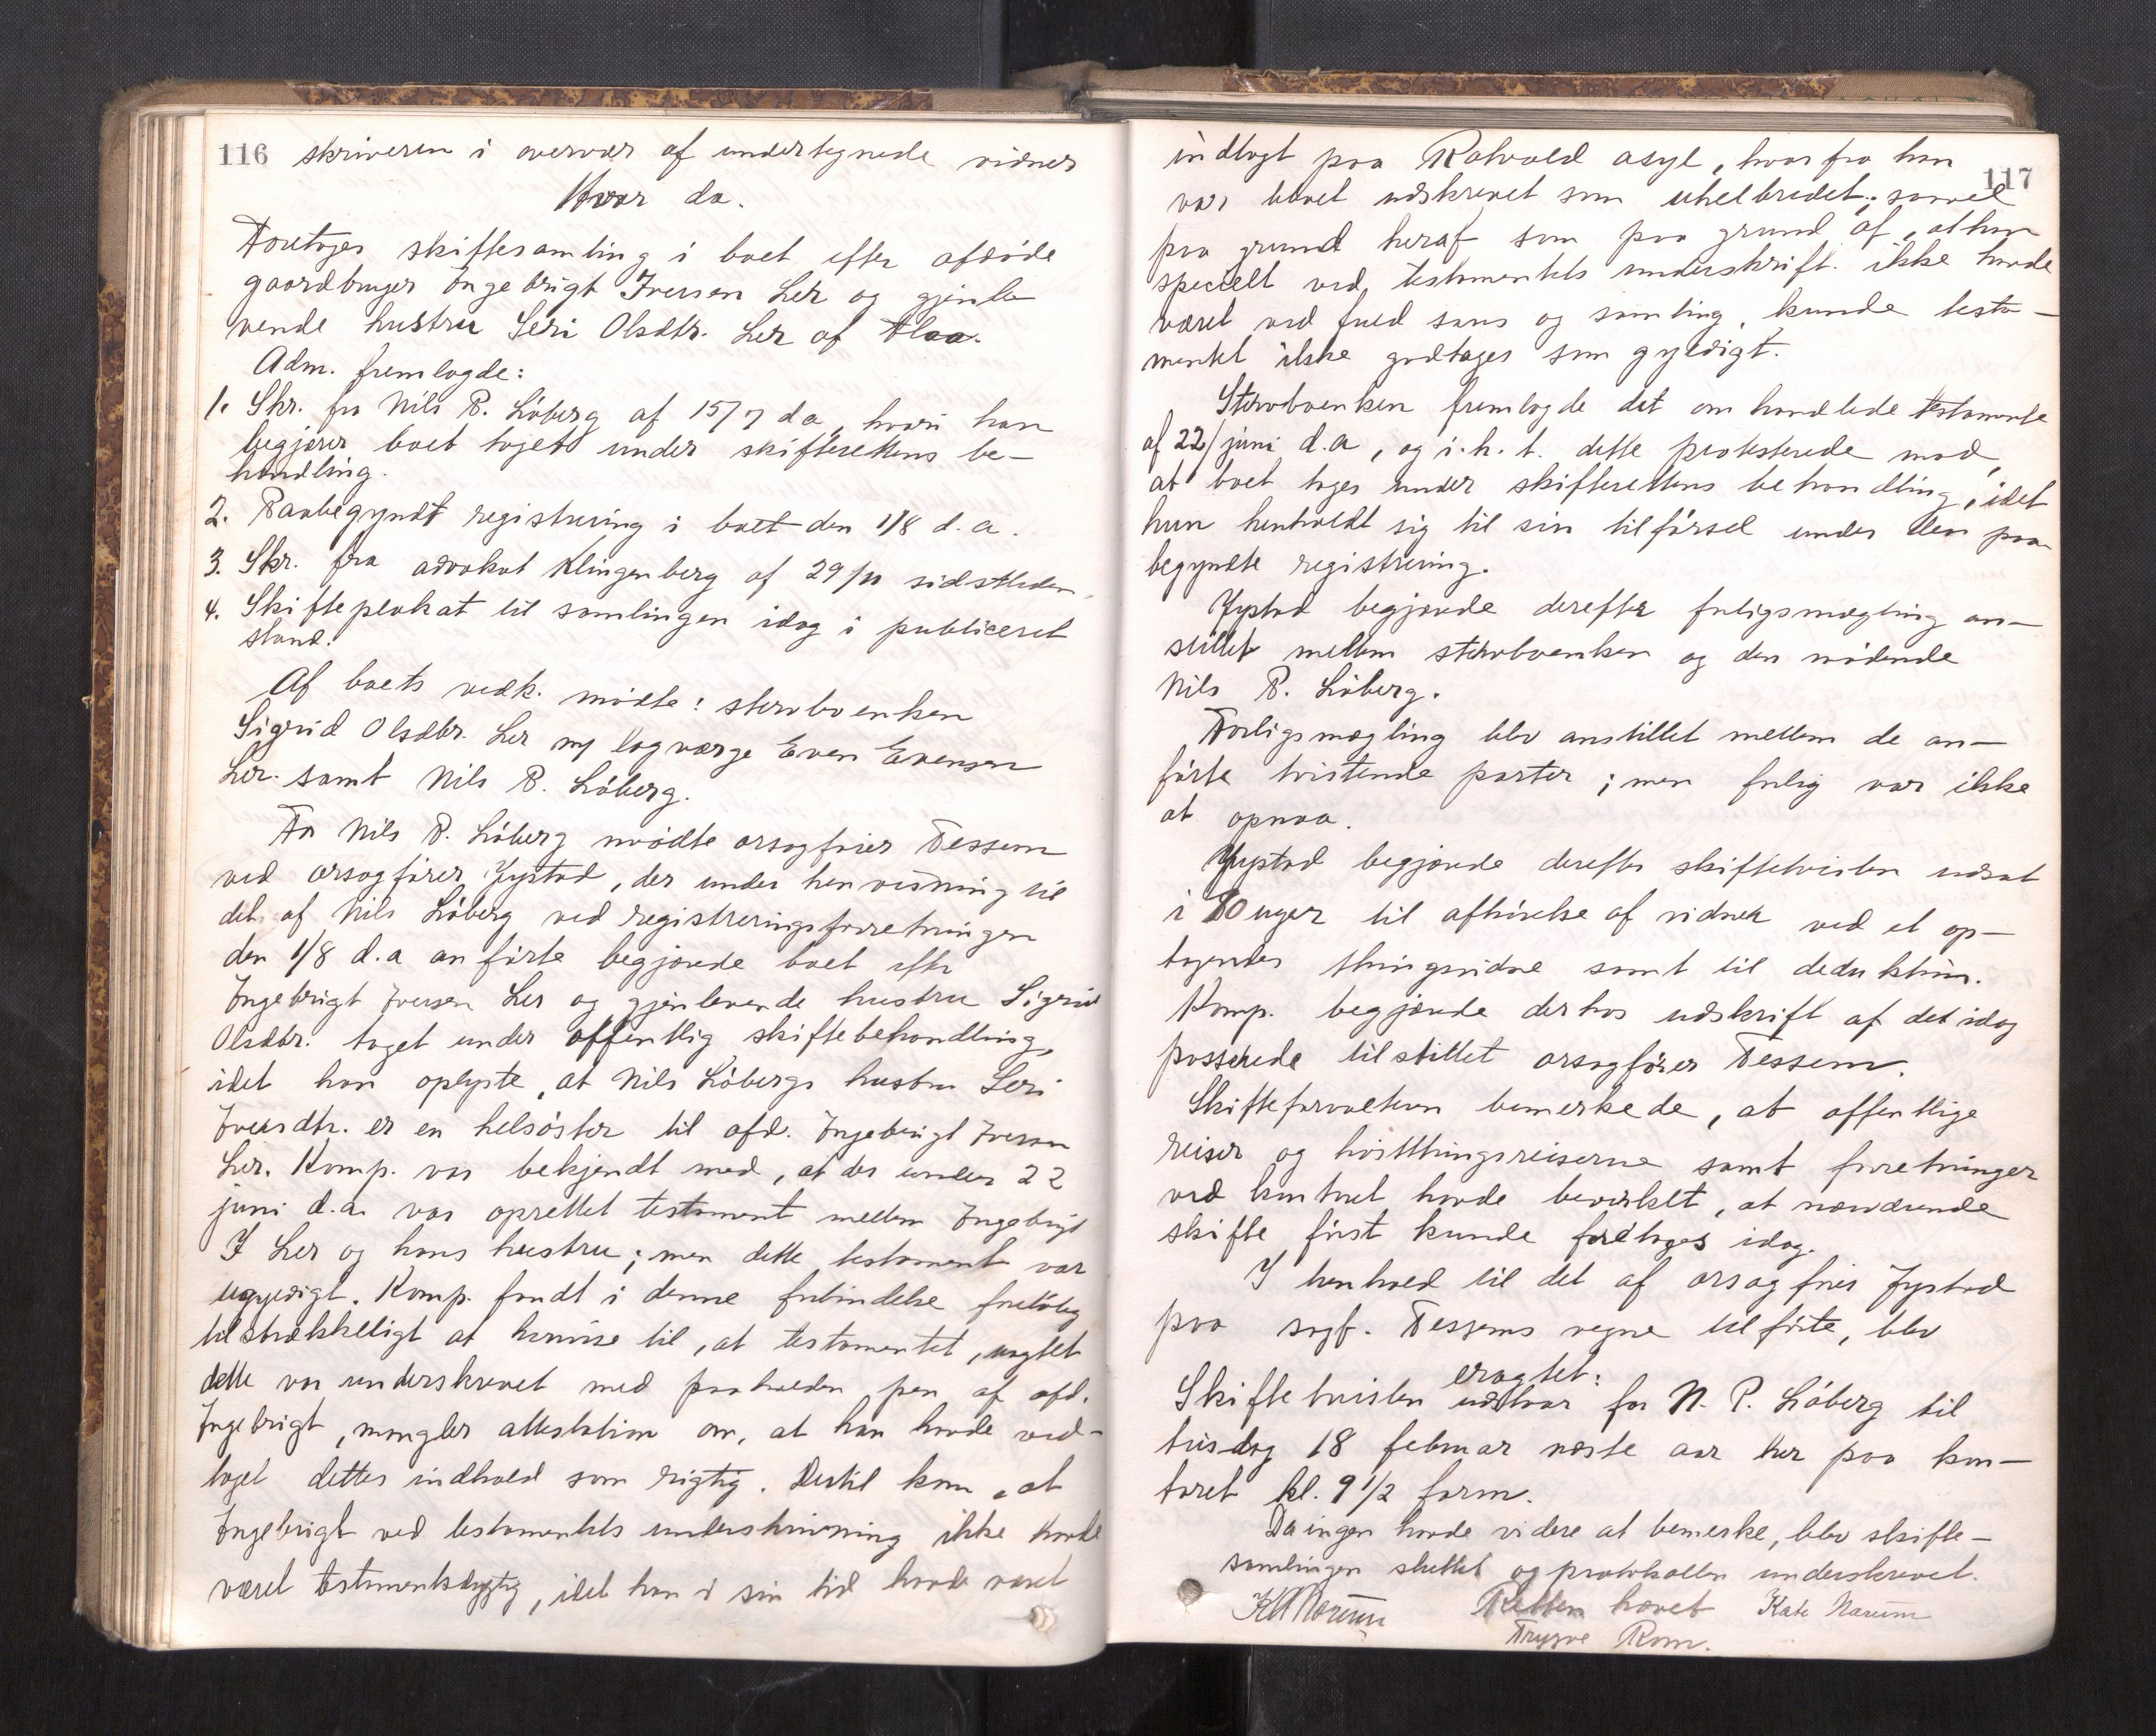 116 skriveren i overvær af undertegnede vidner
Hvor da.
Foretoges skiftesamling i boet efter afdöde
gaardbruger Ingebrigt Iversen Ler og gjenle-
vende hustru Seri Olsdtr. Ler af Flaa.
Adm. fremlagde:
1. Skr. fra Nils P. Löberg af 15/7 d a, hvori han
begjærer boet taget under skifterettens be-
handling.
2. Paabegyndt registrering i boet den 1/8 d. a.
3. Skr. fra advokat Klingenberg af 29/10 sidstleden.
4. Skifteplakat til samlingen idag i publiceret
stand.
Af boets vedk. mödte: stervboenken
Sigrid Olsdtr. Ler m/ lagværge Even Evensen
Ler. samt Nils P. Löberg.
For Nils P. Löberg mödte orsagförer Fessem
ved orsagförer Jystad, der under henvisning til
det af Nils Löberg ved registreringsforretningen
den 1/8 d. a anförte begjærede boet efter
Ingebrigt Iversen Ler og gjenlevende hustru Sigrid
Olsdtr. taget under offentlig skiftebehandling,
idet han oplyste, at Nils Löbergs hustru Seri
Iversdtr. er en helsöster til afd. Ingebrigt Iversen
Ler. Komp. var bekjendt med, at der under 22
juni d. a. var oprettet testament mellem Ingebrigt
I Ler og hans hustru; men dette testament var
ugyldigt. Komp. fandt i denne forbindelse foreløbig
tilstrækkeligt at henvise til, at testamentet, uagtet
dette var underskrevet med paaholden pen af afd.
Ingebrigt, mangler attestation om, at han havde ved-
taget dettes indhold som rigtig. Dertil kom, at
Ingebrigt ved testamentets underskrivning ikke havde
været testamentsdygtig, idet han i sin tid havde været
117
indlagt paa Rotvold asyl, hvorfra han
var blevet udskrevet som uhelbredet; saavel
paa grund heraf som paa grund af, at han
specielt ved testamentets underskrift ikke havde
været ved fuld sans og samling, kunde testa-
mentet ikke godtages som gyldigt.
Stervboenken fremlagde det omhandlede testamente
af 22/ juni d. a, og i. h. t. dette protesterede mod,
at boet toges under skifterettens behandling, idet
hun henholdt sig til sin tilförsel under den paa-
begyndte registrering.
Jystad begjærede derefter forligsmægling an-
stillet mellem stervboenken og den mödende
Nils P. Löberg.
Forligsmægling blev anstillet mellem de an-
förte tvistende parter; men forlig var ikke
at opnaa.
Jystad begjærede derefter skiftetvisten udsat
i 10 uger til afhörelse af vidner ved et op-
tagendes thingsvidne samt til deduktion.
Komp. begjærede derhos udskrift af det idag
passerede tilstillet orsagförer Fessem.
Skifteforvalteren bemerkede, at offentlige
reiser og höstthingsreiserne samt forretninger
ved kontoret havde bevirket, at nærværende
skifte först kunde foretages idag.
I henhold til det af orsagförer Jystad
paa sagf. Fessems vegne tilförte, blev
eragtet:
Skiftetvisten udstaar for N. P. Löberg til
tirsdag 18 februar næste aar her paa kon-
toret kl. 9 1/2 form.
Da ingen havde videre at bemerke, blev skifte-
samlingen sluttet og protokollen underskrevet.
Retten hævet Kate Narum
Trygve Rom.